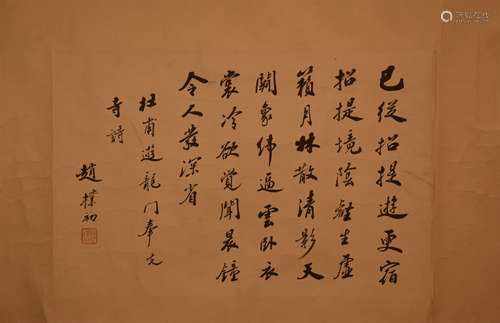 已從招提遊更宿
招提境陰壑生虛
籟月林散清影天
闕象緯逼雲卧衣
裳冷欲覺聞晨鐘
令人發深省
杜甫遊龍門奉先
寺詩
趙樸初